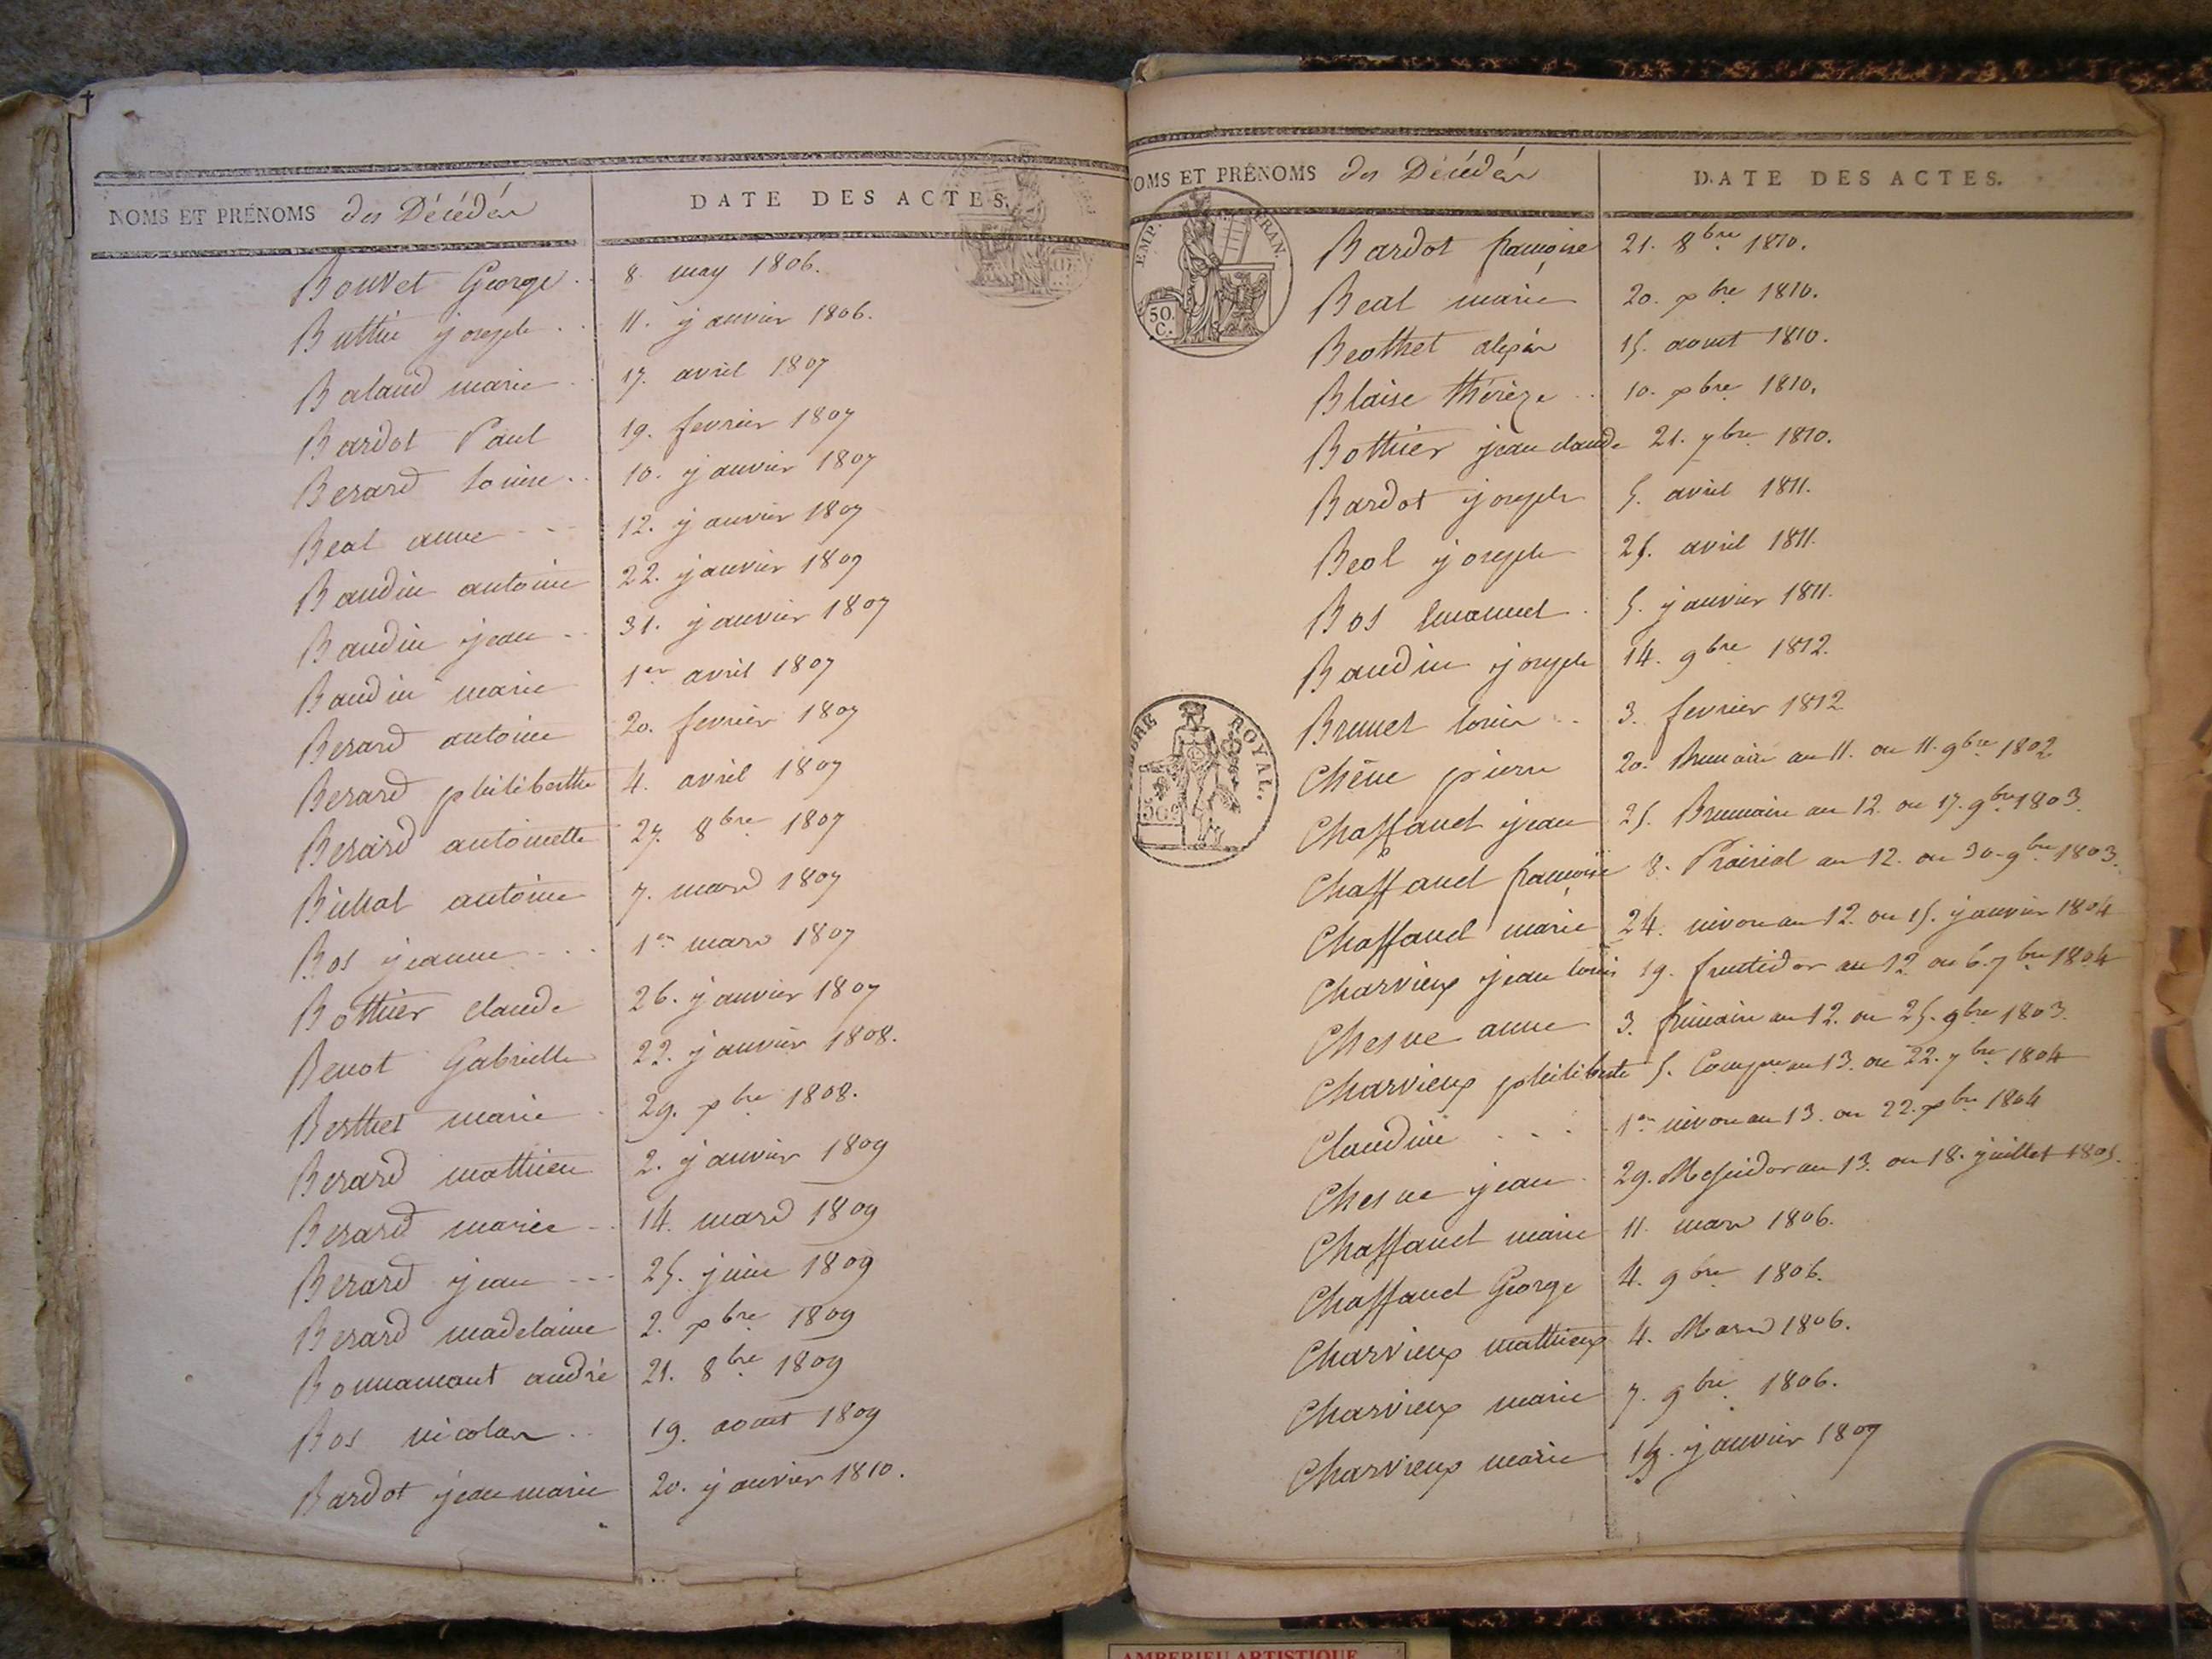 NOMS ET PRÉNOMS des Décédés DATE DES ACTES.
Bouvet George . 8. may 1806.
Buttin joseph . . 11. janvier 1806.
Balaud marie . . 17. avril 1807
Bardot Paul 19. fevrier 1807
Berard Louise . . 10. janvier 1807
Beal anne - - - 12. janvier 1807
Baudin antoine 22. janvier 1807
Baudin jean - . 31. janvier 1807
Baudin marie 1er avril 1807
Berard antoine 20. fevrier 1807
Berard philiberthe 4. avril 1807
Berard antoinette 27. 8bre 1807
antoine 7. mard 1807
Bos jeanne - . . 1er mard 1807
Bottier claude 26. janvier 1807
Benot Gabrielle 22. janvier 1808.
Berthet marie . 29. xbre 1808.
Berard mathieu 2. janvier 1809
Berard marie - . 14. mard 1809
Berard jean - - - 25. juin 1809
Berard madelaine 2. xbre 1809
Bonnamant andré 21. 8bre 1809
Bos nicolas . . 19. aout 1809
Bardot jean marie 20. janvier 1810.
NOMS ET PRÉNOMS des Décédés DATE DES ACTES.
EMP. FRAN.
50. C.
Bardot françoise 21. 8bre 1810.
Beal marie 20. xbre 1810.
Beothet alexis 15. aout 1810.
Blaise thérèze . . 10. xbre 1810.
Bottier jean claude 21. 7bre 1810.
Bardot joseph 5. avril 1811.
Beol joseph 25. avril 1811.
Bos Emanuel . 5. janvier 1811.
Baudin joseph 14. 9bre 1812.
Brunet louis . . 3. fevrier 1812
TIMBRE ROYAL.
Chêne pierre 20. Brumaire an 11. ou 11. 9bre 1802
Chaffaud jean 25. Brumaire an 12. ou 17. 9bre 1803.
Chaffaud françoise 8. Prairial an 12. ou 30. 9bre 1803.
Chaffaud marie 24. nivose an 12. ou 15. janvier 1804
Charvieux jean louis 19. fructidor an 12 ou 6. 7bre 1804
Chesne anne 3. frimaire an 12. ou 25. 9bre 1803.
Charvieux philiberte 5. Comp.re an 13. ou 22. 7bre 1804
Claudine . . . . 1er nivose an 13. ou 22. xbre 1804
Chesne jean . 29. Messidor an 13. ou 18. juillet 1805.
Chaffaud marie 11. mars 1806.
Chaffaud George 4. 9bre 1806.
Charvieux mathieux 4. Mard 1806.
Charvieux marie 7. 9bre 1806.
Charvieux marie janvier 1807
AMBERIEU ARTISTIQUE